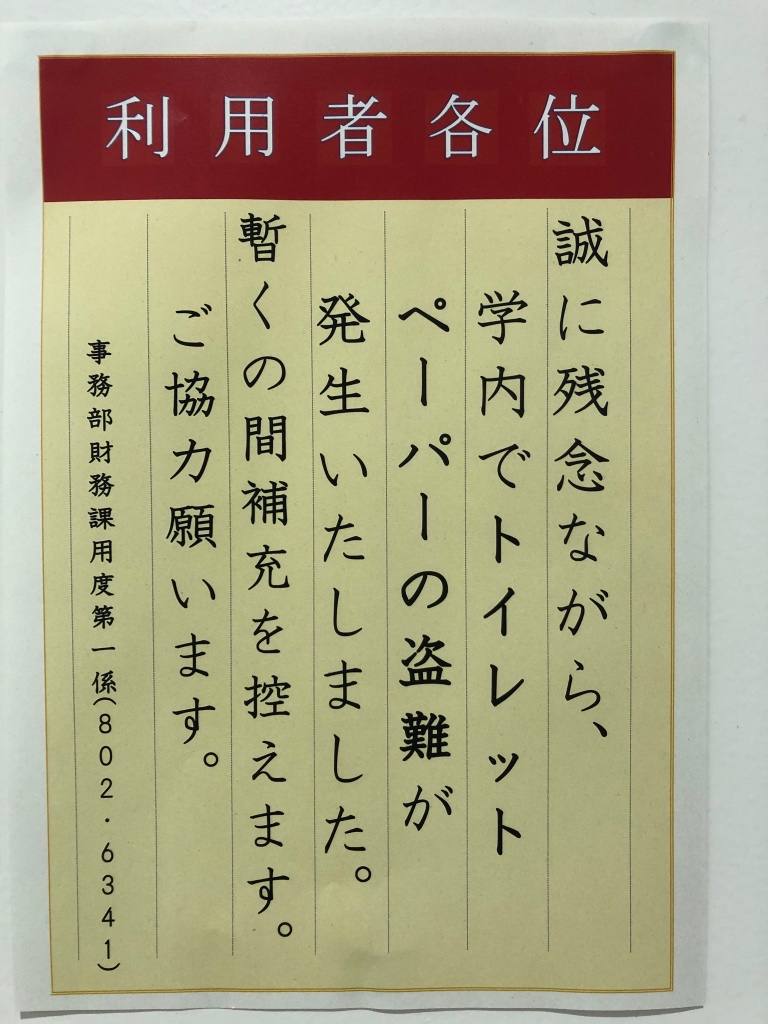 利用者各位
誠に残念ながら、
学内でトイレット
ペーパーの盗難が
発生いたしました。
暫くの間補充を控えます。
ご協力願います。
事務部財務課用度第一係(802・6341)